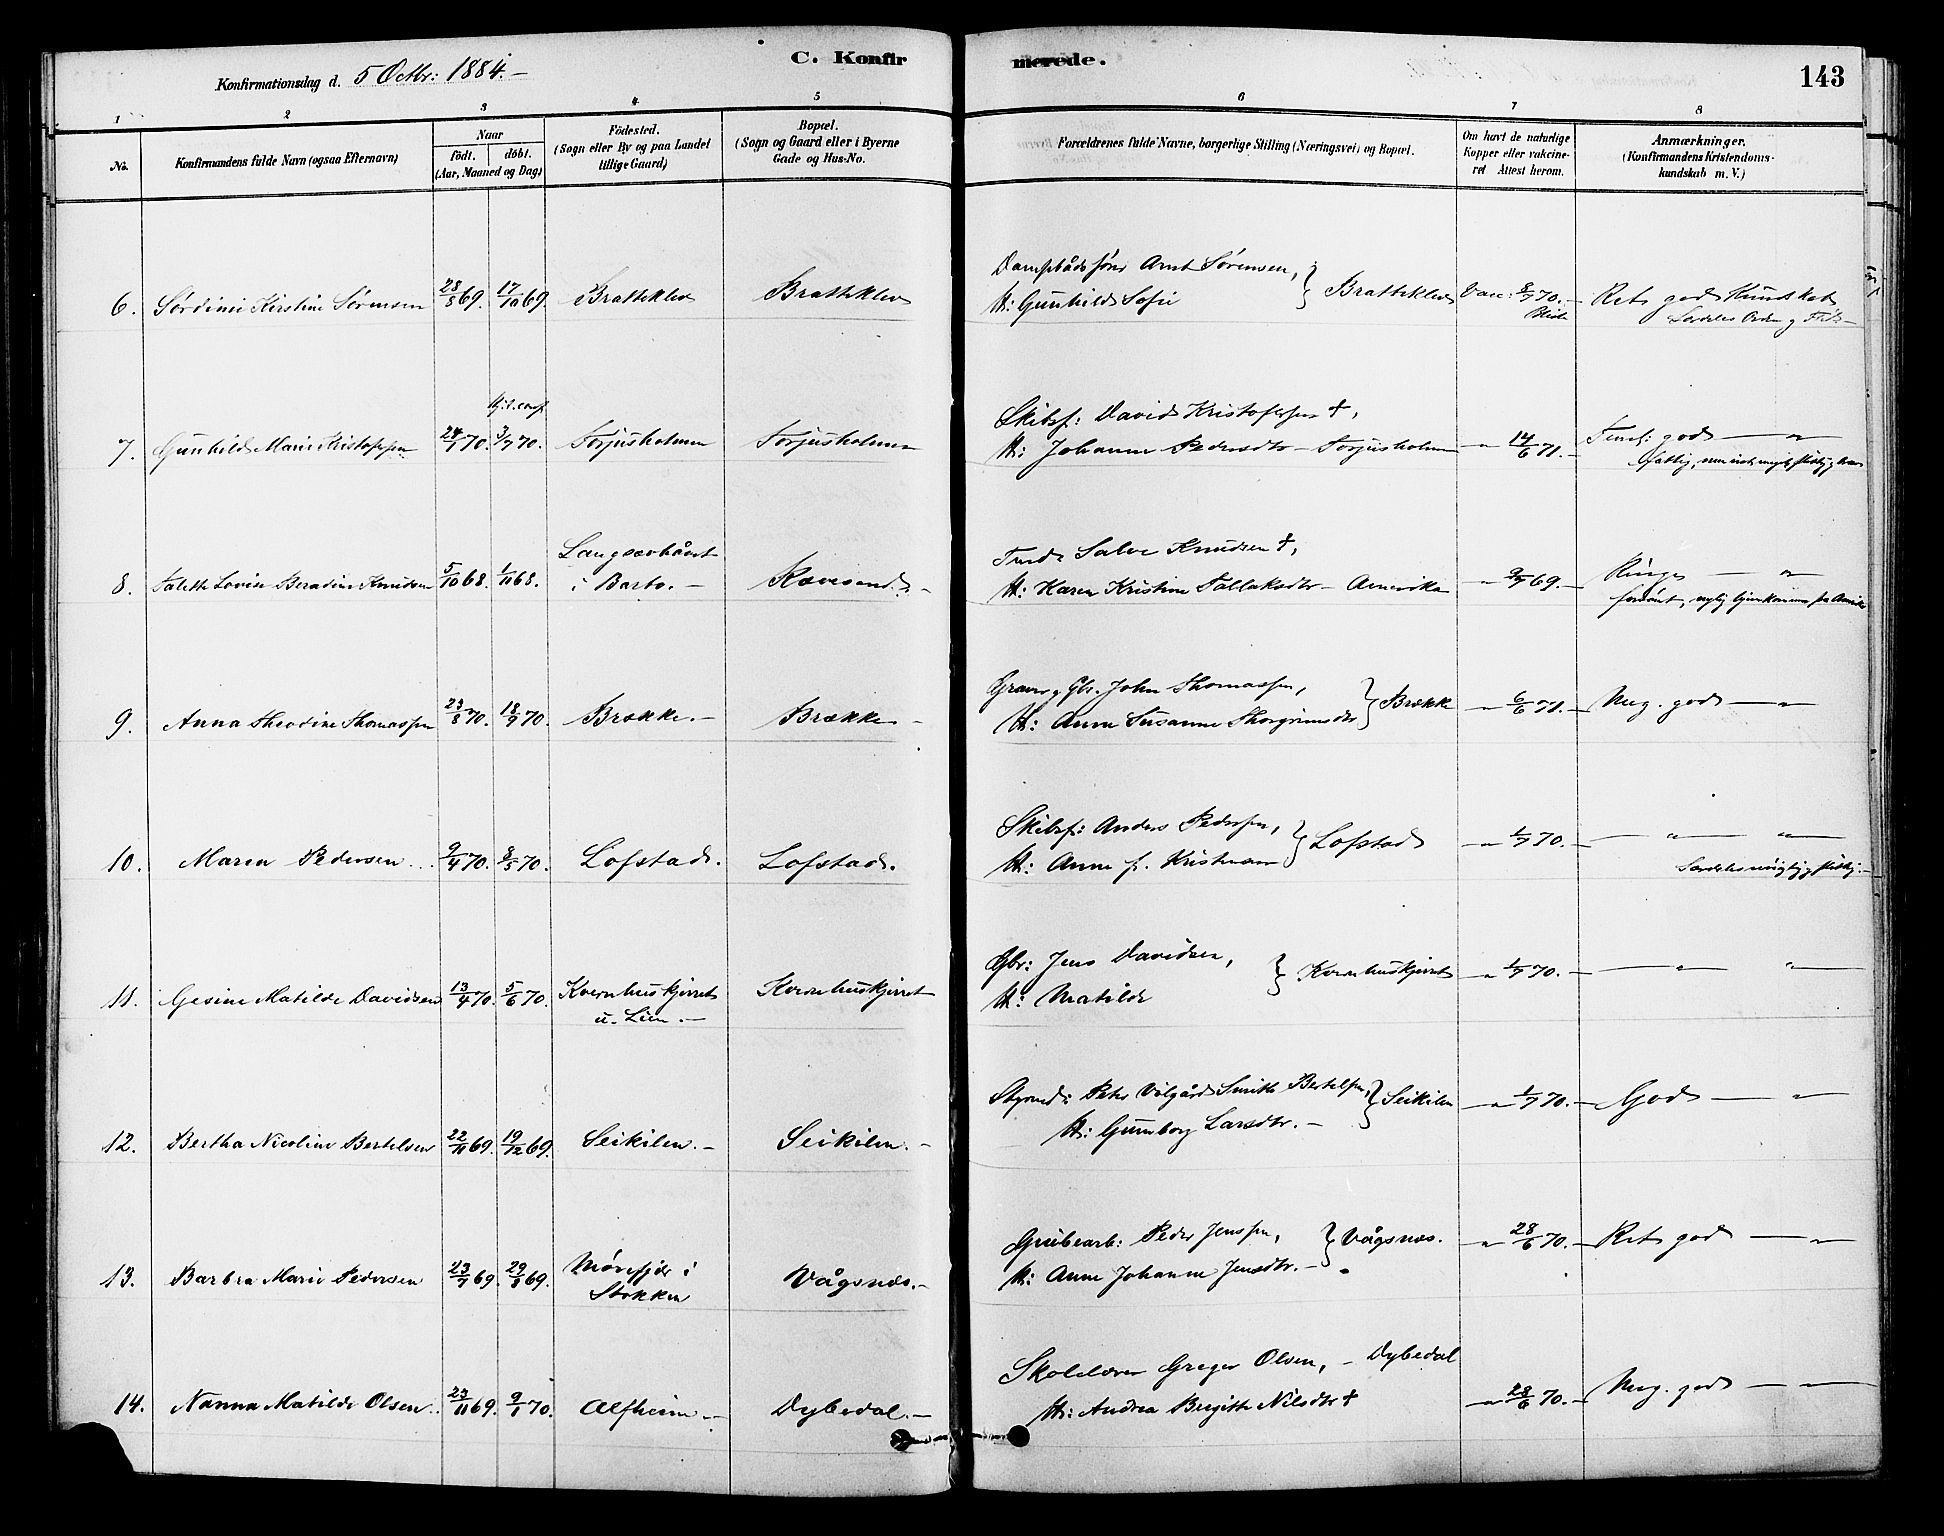 Konfirmationsdag d. 5 Octbr: 1884.-
C. Konfirmerede.
143
1 2 3 4 5 6 7 8
No.
Konfirmandens fulde Navn (ogsaa Efternavn)
Naar
födt. döbt.
(Aar, Maaned og Dag)
Födested.
(Sogn eller By og paa Landet
tillige Gaard)
Bopæl.
(Sogn og Gaard eller i Byerne
Gade og Hus-No.
Forældrenes fulde Navne, borgerlige Stilling (Næringsvei) og Bopæl.
Om havt de naturlige
Kopper eller vakcine-
ret Attest herom.
Anmærkninger.
(Konfirmandens Kristendoms-
kundskab m. V.)
6. Kirstine Sørensen 28/8 69. 17/10 69. Bratteklev Bratteklev
Dampbådsfører Arnt Sørensen,
H: Gunhild Sofie } Bratteklev
Vacc: 8/7 70.-
Ret god Kundskab
Særdeles Orden og Flid-
7. Gunhild Marie Kristofersen 24/1 70. 3/7 70. Torjusholmen Torjusholmen
Skibsf: David Kristofersen †,
H: Johanne Pedersdtr - Torjusholmen
-"- 14/6 71.-
Temel: god -"-
8. Talette Lovise Beradine Knudsen 5/10 68. 1/11 68.
i Barbo.-
Rævesand.-
Salve Knudsen †,
H: Karen Kristine Tallaksdtr - Amerika
-"- 9/7 69.-
Ringe -"-
forsömt, nylig hjemkommen fra Amerika
9. Anna Theodine Thomassen 23/8 70. 18/9 70. Brække.- Brække.-
Gbr. John Thomassen,
H: Anne Susanne Thorgrimsdtr } Brække
-"- 6/6 71.-
Meg. god -"-
10. Maren Pedersen 9/4 70. 8/5 70. Lofstad. Lofstad.
Skibsf: Anders Pedersen,
H: Anne f. Kristensen } Lofstad
-"- 1/7 70.-
-"- -"-
Særdeles flittig.-
11. Gesine Matilde Davidsen 13/4 70. 5/6 70. Kvernhuskjerret
u. Lien.-
Kvernhuskjerret
Gbr: Jens Davidsen,
H: Matilde } Kvernhuskjerret
-"- 1/7 70.-
-"- -"-
12. Bertha Nicoline Bertelsen 22/11 69. 19/12 69. Seikilen.- Seikilen.-
Styrmd: Peter Vilgård Smith Bertelsen,
H: Gunborg Larsdtr.- } Seikilen
-"- 1/7 70.-
God -"-
13. Barbra Marie Pedersen 23/7 69. 29/8 69. Mørefjær i
Stokken
Vågsnæs.-
Grubearb: Peder Jenssen,
H: Anne Johanne Jensdtr.- } Vågsnæs.
-"- 28/6 70.-
Ret god -"-
14. Nanna Matilde Olsen. 23/11 69. 9/1 70. Alfheim.- Dybedal.-
Skolelærer Greger Olsen, - Dybedal
H: Andrea Birgitte Nilsdtr †
-"- 28/6 70.-
Meg. god - -